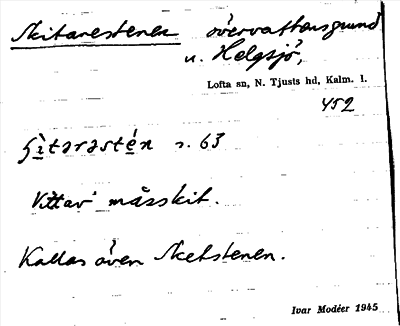 Skitarestenen övervattensgrund
u. Helgsjö,
Lofta sn, N. Tjusts hd, Kalm. l.
452
s. 63
Vittav måsskit.
Kallas även Sketstenen.
Ivar Modéer 1945